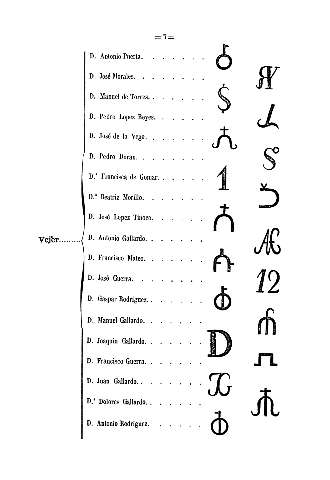 = 7 =
D. Antonio Puerta. . . . . . .
D. José Morales. . . . . . . .
D. Manuel de Torres. . . . . . .
D. Pedro Lopez Reyes. . . . . .
D. José de la Vega. . . . . . .
D. Pedro Duran. . . . . . . .
D.ª Francisca de Gomar. . . . . .
D.ª Beatriz Morillo. . . . . . .
D. José Lopez Tinoco. . . . . .
Vejér......... D. Antonio Gallardo. . . . . . .
D. Francisco Mateo. . . . . . .
D. José Guerra. . . . . . . .
D. Gaspar Rodriguez. . . . . .
D. Manuel Gallardo. . . . . . .
D. Joaquin Gallardo. . . . . . .
D. Francisco Guerra. . . . . . .
D. Juan Gallardo. . . . . . . .
D.ª Dolores Gallardo. . . . . . .
D. Antonio Rodriguez. . . . . .
S
1
12
D